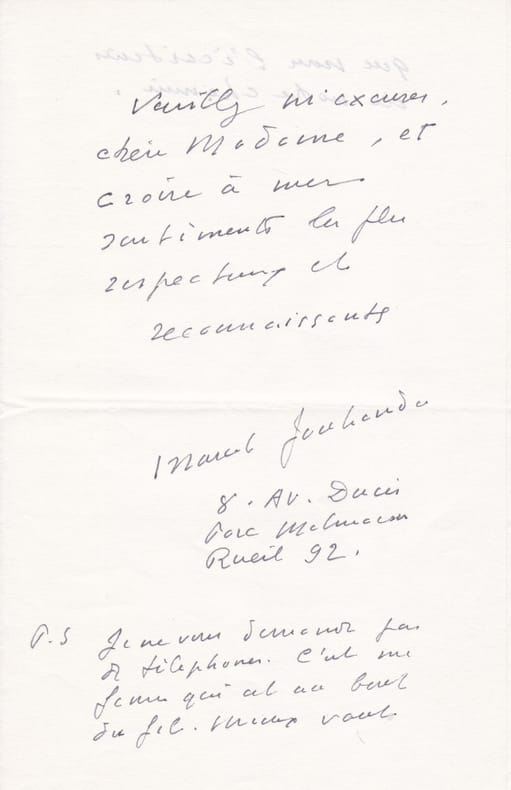 Veuillez m'excuser,
chère Madame, et
croire à mes
sentiments les plus
respectueux et
reconnaissants
Marcel Jouhandeau
8. Av. Ducis
Parc Malmaison
Rueil 92.
P.S Je ne vous demande pas
de téléphoner. C'est ma
femme qui est au bout
du fil. Mieux vaut